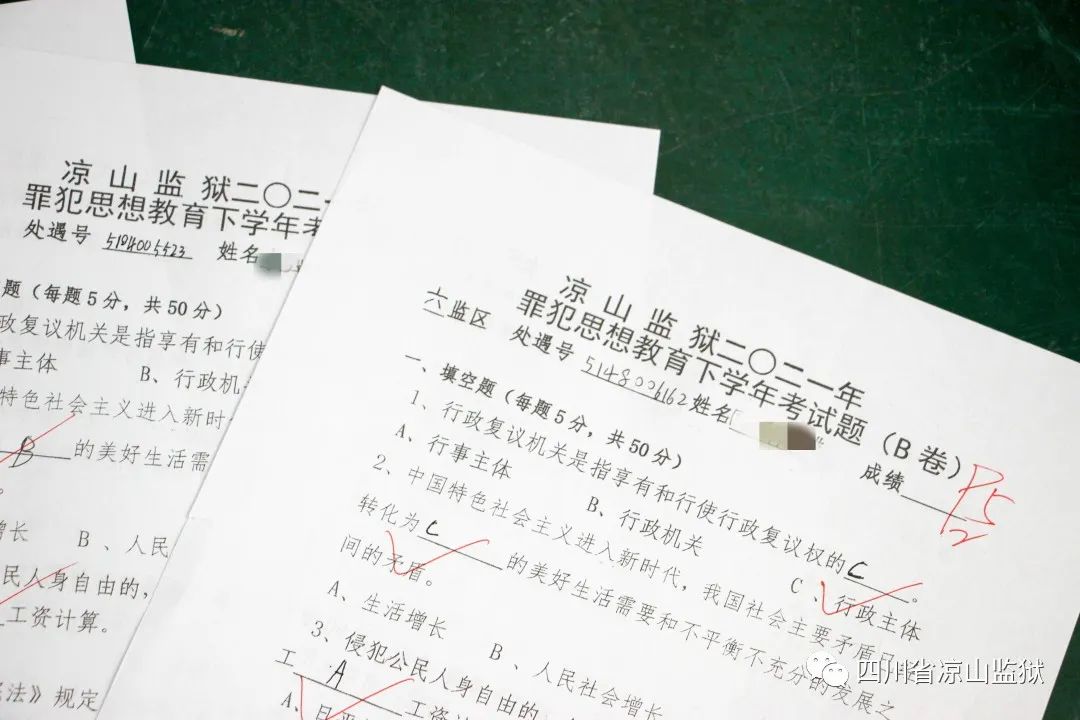 凉山监狱二〇二
罪犯思想教育下学年考
处遇号 5184005523 姓名
题（每题5分，共50分）
政复议机关是指享有和行使
事主体 B、行政机
特色社会主义进入新时
B 的美好生活需
。
增长 B、人民
民人身自由的，
工资计算。
法》规定
凉山监狱二〇二一年
罪犯思想教育下学年考试题（B卷）
六监区 处遇号 5148006162 姓名 成绩
一、填空题（每题5分，共50分）
1、行政复议机关是指享有和行使行政复议权的 C 。
A、行事主体 B、行政机关 C、行政主体
2、中国特色社会主义进入新时代，我国社会主要矛盾已经
转化为 C 的美好生活需要和不平衡不充分的发展之
间的矛盾。
A、生活增长 B、人民社会增长
3、侵犯公民人身自由的
工 A 工资
A、日平
四川省凉山监狱